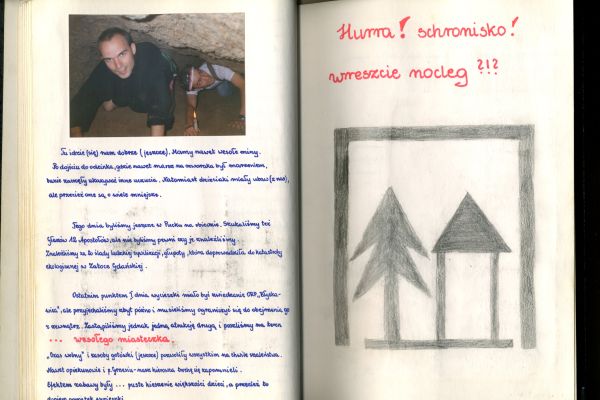 Tu idzie (się) nam dobrze (jeszcze). Mamy nawet wesołe miny.
Po dojściu do odcinka, gdzie nawet marsz na czworaka był marzeniem,
buzie zaczęły ukazywać inne uczucia. Natomiast dzieciaki miały ubaw (z nas),
ale przecież one są o wiele mniejsze.
Tego dnia byliśmy jeszcze w Pucku na obiedzie. Szukaliśmy też
Głazów 12 Apostołów, ale nie byliśmy pewni czy je znaleźliśmy.
Znaleźliśmy za to ślady ludzkiej cywilizacji, głupoty, która doprowadziła do katastrofy
ekologicznej w Zatoce Gdańskiej.
Ostatnim punktem I dnia wycieczki miało być zwiedzanie ORP „Błyska-
wica", ale przyjechaliśmy zbyt późno i musieliśmy ograniczyć się do obejrzenia go
z zewnątrz. Zastąpiliśmy jednak jedną atrakcję drugą i poszliśmy na teren
... wesołego miasteczka.
„Czas wolny" i zasoby gotówki (jeszcze) pozwoliły wszystkim na chwile szaleństwa.
Nawet opiekunowie i p. Grzesiu - nasz kierowca trochę się zapomnieli.
Efektem zabawy były ... puste kieszenie większości dzieci, a przecież to
dopiero początek wycieczki.
Hurra! schronisko!
wreszcie nocleg ?!?